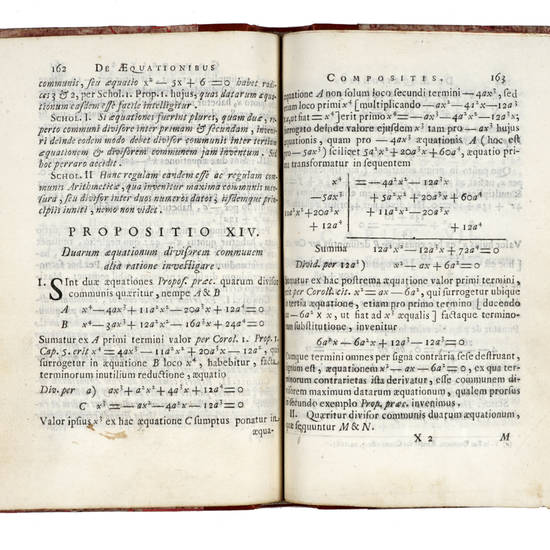 162 DE ÆQUATIONIBUS
communis, seu æquatio x² — 5x + 6 = 0 habet radi-
ces 3 & 2, per Schol. 1. Prop. 1. hujus, quas datarum æqua-
tionum easdem esse facile intelligitur.
SCHOL. I. Si æquationes fuerint plures, quam duæ, re-
perto communi divisore inter primam & secundam, inveni-
ri deinde eodem modo debet divisor communis inter tertiam
æquationem & divisorem communem jam inventum. Sed
hoc perraro accidit.
SCHOL. II Hanc regulam eandem esse ac regulam com-
munis Arithmeticæ, qua invenitur maxima communis men-
sura, seu divisor inter duos numeros datos, iisdemque prin-
cipiis inniti, nemo non videt.
PROPOSITIO XIV.
Duarum æquationum divisorem communem
alia ratione investigare.
I. Sint duæ æquationes Propos. præc. quarum divisor
communis quæritur, nempe A & B
A x⁴ — 4ax³ + 11a²x² — 20a³x + 12a⁴ = 0
B x⁴ — 3ax³ + 12a²x² — 16a³x + 24a⁴ = 0
Sumatur ex A primi termini valor per Corol. 1. Prop. 1.
Cap. 5. erit x⁴ = 4ax³ — 11a²x² + 20a³x — 12a⁴, qui
surrogetur in æquatione B loco x⁴, habebitur, facta
terminorum inutilium reductione, æquatio
Div. per a) ax³ + a²x² + 4a³x + 12a⁴ = 0
C x³ = — ax² — 4a²x — 12a³ = 0
Valor ipsius x³ ex hac æquatione C sumptus ponatur in
æqua-
COMPOSITIS. 163
æquatione A non solum loco secundi termini — 4ax³, sed
loco primi x⁴ [multiplicando — ax² — 4a²x — 12a³
ut fiat = x⁴] erit primo x⁴ =
surrogito deinde valore ejusdem x³ tam pro — ax³ hujus
æquationis, quam pro — 4ax³ æquationis A (hoc est
pro — 5ax³) scilicet 5a²x² + 20a³x + 60a⁴, æquatio pri
transformatur in sequentem
x⁴ = — 4a²x² — 12a³x
— 5ax³ + 5a²x² + 20a³x + 60a⁴
11a²x² + 11a²x² — 20a³x
+ 12a⁴ + 12a⁴
Summa 12a²x² — 12a³x + 72a⁴ = 0
Divid. per 12a²) x² — ax + 6a² = 0
Sumatur ex hac postrema æquatione valor primi termini,
per Coroll. cit. x² = ax — 6a², qui surrogetur ubique
tertia æquatione, etiam pro primo termino [ducendo
ax — 6a² × x, ut fiat ad x³ æqualis] factaque termino-
rum substitutione, invenitur
6a²x — 6a²x + 12a³ — 12a³ = 0
Cumque termini omnes per signa contraria sese destruant,
æquationem x² — ax — 6a² = 0, ex qua ter-
minorum contrarietas ista derivatur, esse communem di-
visorem maximum datarum æquationum, qualem prorsus
secundo exemplo Prop. præc. invenimus.
II. Quæritur divisor communis duarum æquationum,
quæ sequuntur M & N.
X 2 M